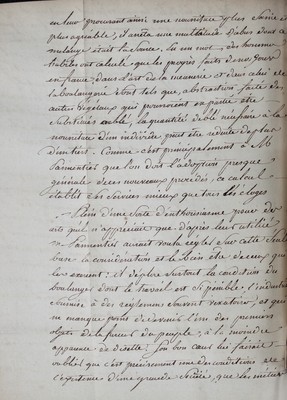 en leur procurant ainsi une nourriture plus saine et
plus agréable, il arrêta une multitude d'abus dont ce
mélange était la source. En un mot, des hommes
habiles ont calculé que les progrès faits de nos jours
en france, dans l'art de la meunerie et dans celui de
la boulangerie étaient tels que, abstraction faite des
autres végétaux qui pourraient en partie être
substitués au blé, la quantité de blé nécessaire à la
nourriture d'un individu peut être réduite de plus
d'un tiers. Comme c'est principalement à M.
Parmentier que l'on doit l'adoption presque
générale de ces nouveaux procédés, ce calcul
établit ses services mieux que tous les éloges.
Plein d'une sorte d'enthousiasme pour des
arts qu'il n'appréciait que d'après leur utilité
Parmentier aurait voulu régler sur cette seule
base la considération et le bien être de ceux qui
les exercent: il déplore surtout la condition du
boulanger dont le travail est si pénible, l'industrie
soumise à des réglemens souvent vexatoires, et qui
ne manque point de devenir l'un des premiers
objets de la fureur du peuple, à la moindre
apparence de disette: son bon cœur lui faisait
oublier que c'est précisément une des conditions de
l'existence d'une grande société, que les métiers